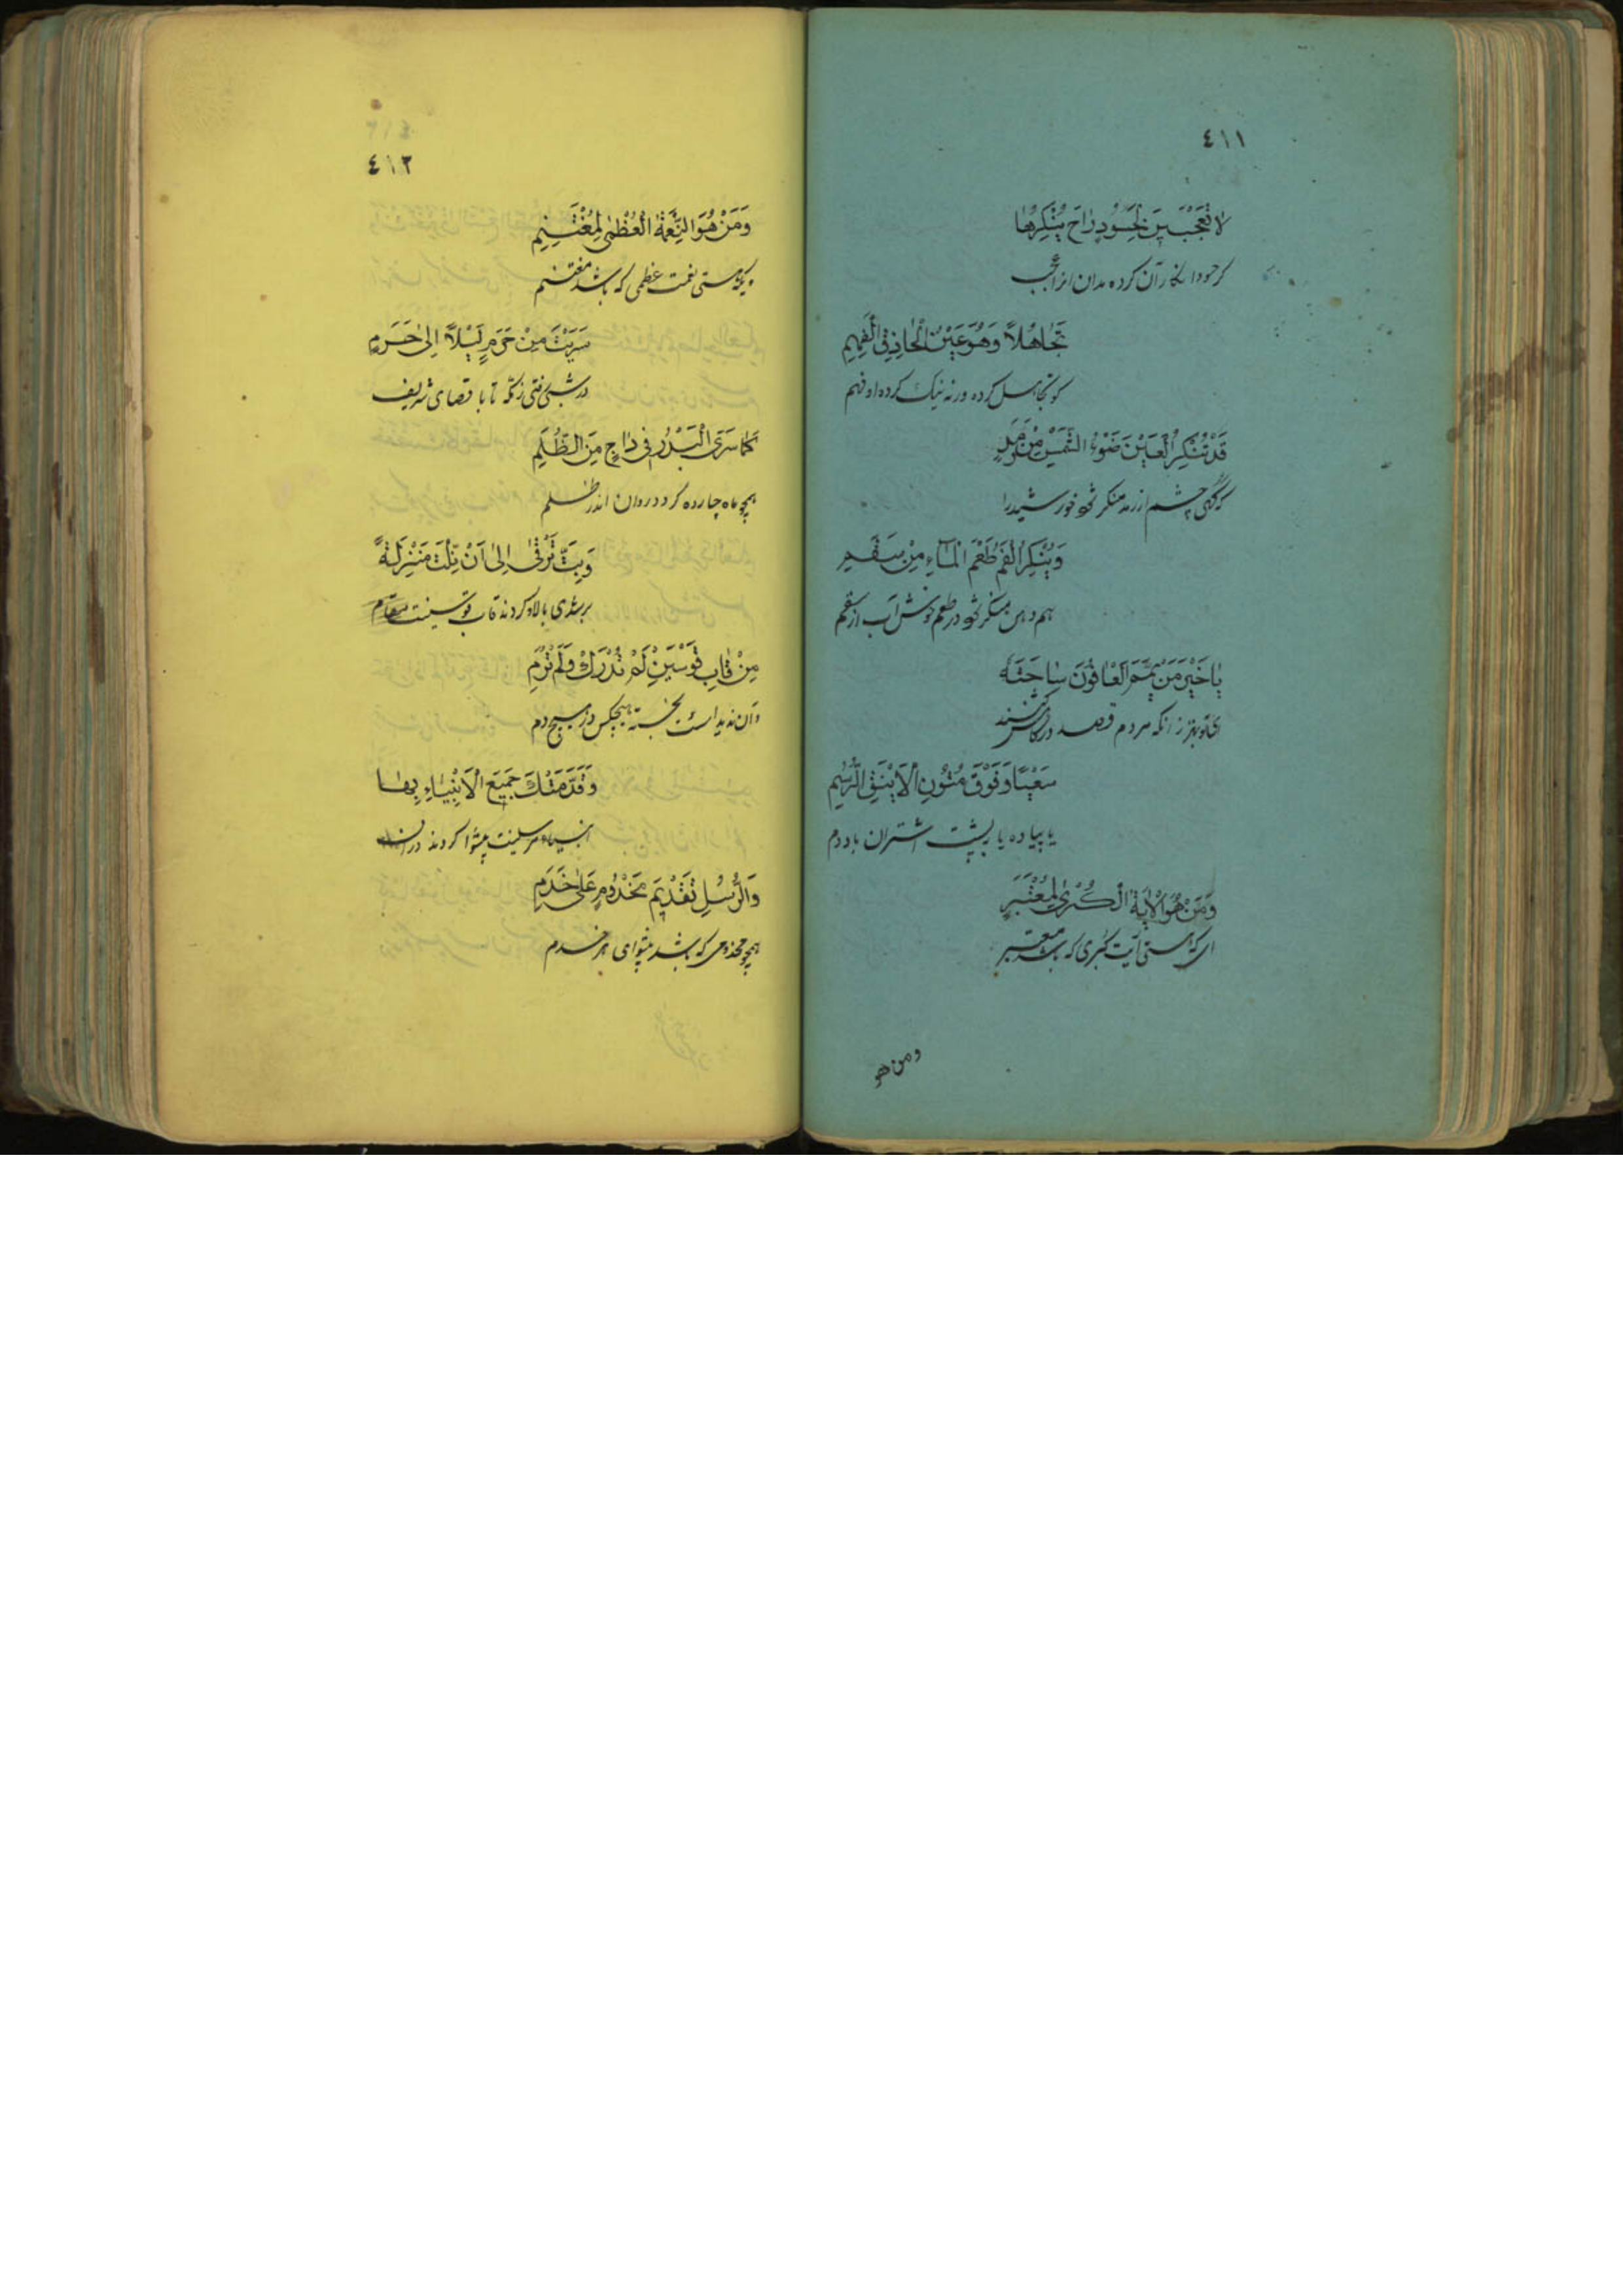 ٤١١
لَا تَعْجَبَنْ لِحَسُودٍ رَاحَ يُنْكِرُهَا
گر حسود انکار آن کرده مدان انرا عجب
تَجَاهُلًا وَهُوَ عَيْنُ الْحَاذِقِ الْفَهِمِ
کو تجاهل کرده ورنه نیک کرده او فهم
قَدْ تُنْكِرُ الْعَيْنُ ضَوْءَ الشَّمْسِ مِنْ رَمَدٍ
که گهی چشم از رمد منکر شود خورشید را
وَيُنْكِرُ الْفَمُ طَعْمَ الْمَاءِ مِنْ سَقَمِ
هم دهن منکر شود در طعم خوش آب از سقم
يَا خَيْرَ مَنْ يَمَّمَ الْعَافُونَ سَاحَتَهُ
ای تو بهتر ز انکه مردم قصد درگاهش کنند
سَعْيًا وَفَوْقَ مُتُونِ الْأَيْنُقِ الرُّسُمِ
یا پیاده یا بپشت اشتران باد دم
وَمَنْ هُوَ الْآيَةُ الْكُبْرَى لِمُعْتَبِرٍ
ای که هستی آیت کبری که باشد معتبر
ومن هو
٤١٢
وَمَنْ هُوَ النِّعْمَةُ الْعُظْمَى لِمُغْتَنِمِ
ویکه هستی نعمت عظمی که باشد مغتنم
سَرَيْتَ مِنْ حَرَمٍ لَيْلًا إِلَى حَرَمٍ
در شبی رفتی ز مکه تا با قصای شریف
كَمَا سَرَى الْبَدْرُ فِي دَاجٍ مِنَ الظُّلَمِ
همچو ماه چارده گردد روان اندر ظلم
وَبِتَّ تَرْقَى إِلَى أَنْ نِلْتَ مَنْزِلَةً
بر شدی بالا و کردند قاب قوسینت مقام
مِنْ قَابِ قَوْسَيْنِ لَمْ تُدْرَكْ وَلَمْ تُرَمِ
وان ندید است نجسته هیچکس در هیچ دم
وَقَدَّمَتْكَ جَمِيعُ الْأَنْبِيَاءِ بِهَا
انبیاء و مرسلینت پیشوا کردند در
وَالرُّسْلِ تَقْدِيمَ مَخْدُومٍ عَلَى خَدَمِ
همچو مخدومی که باشد پیشوای هر خدم